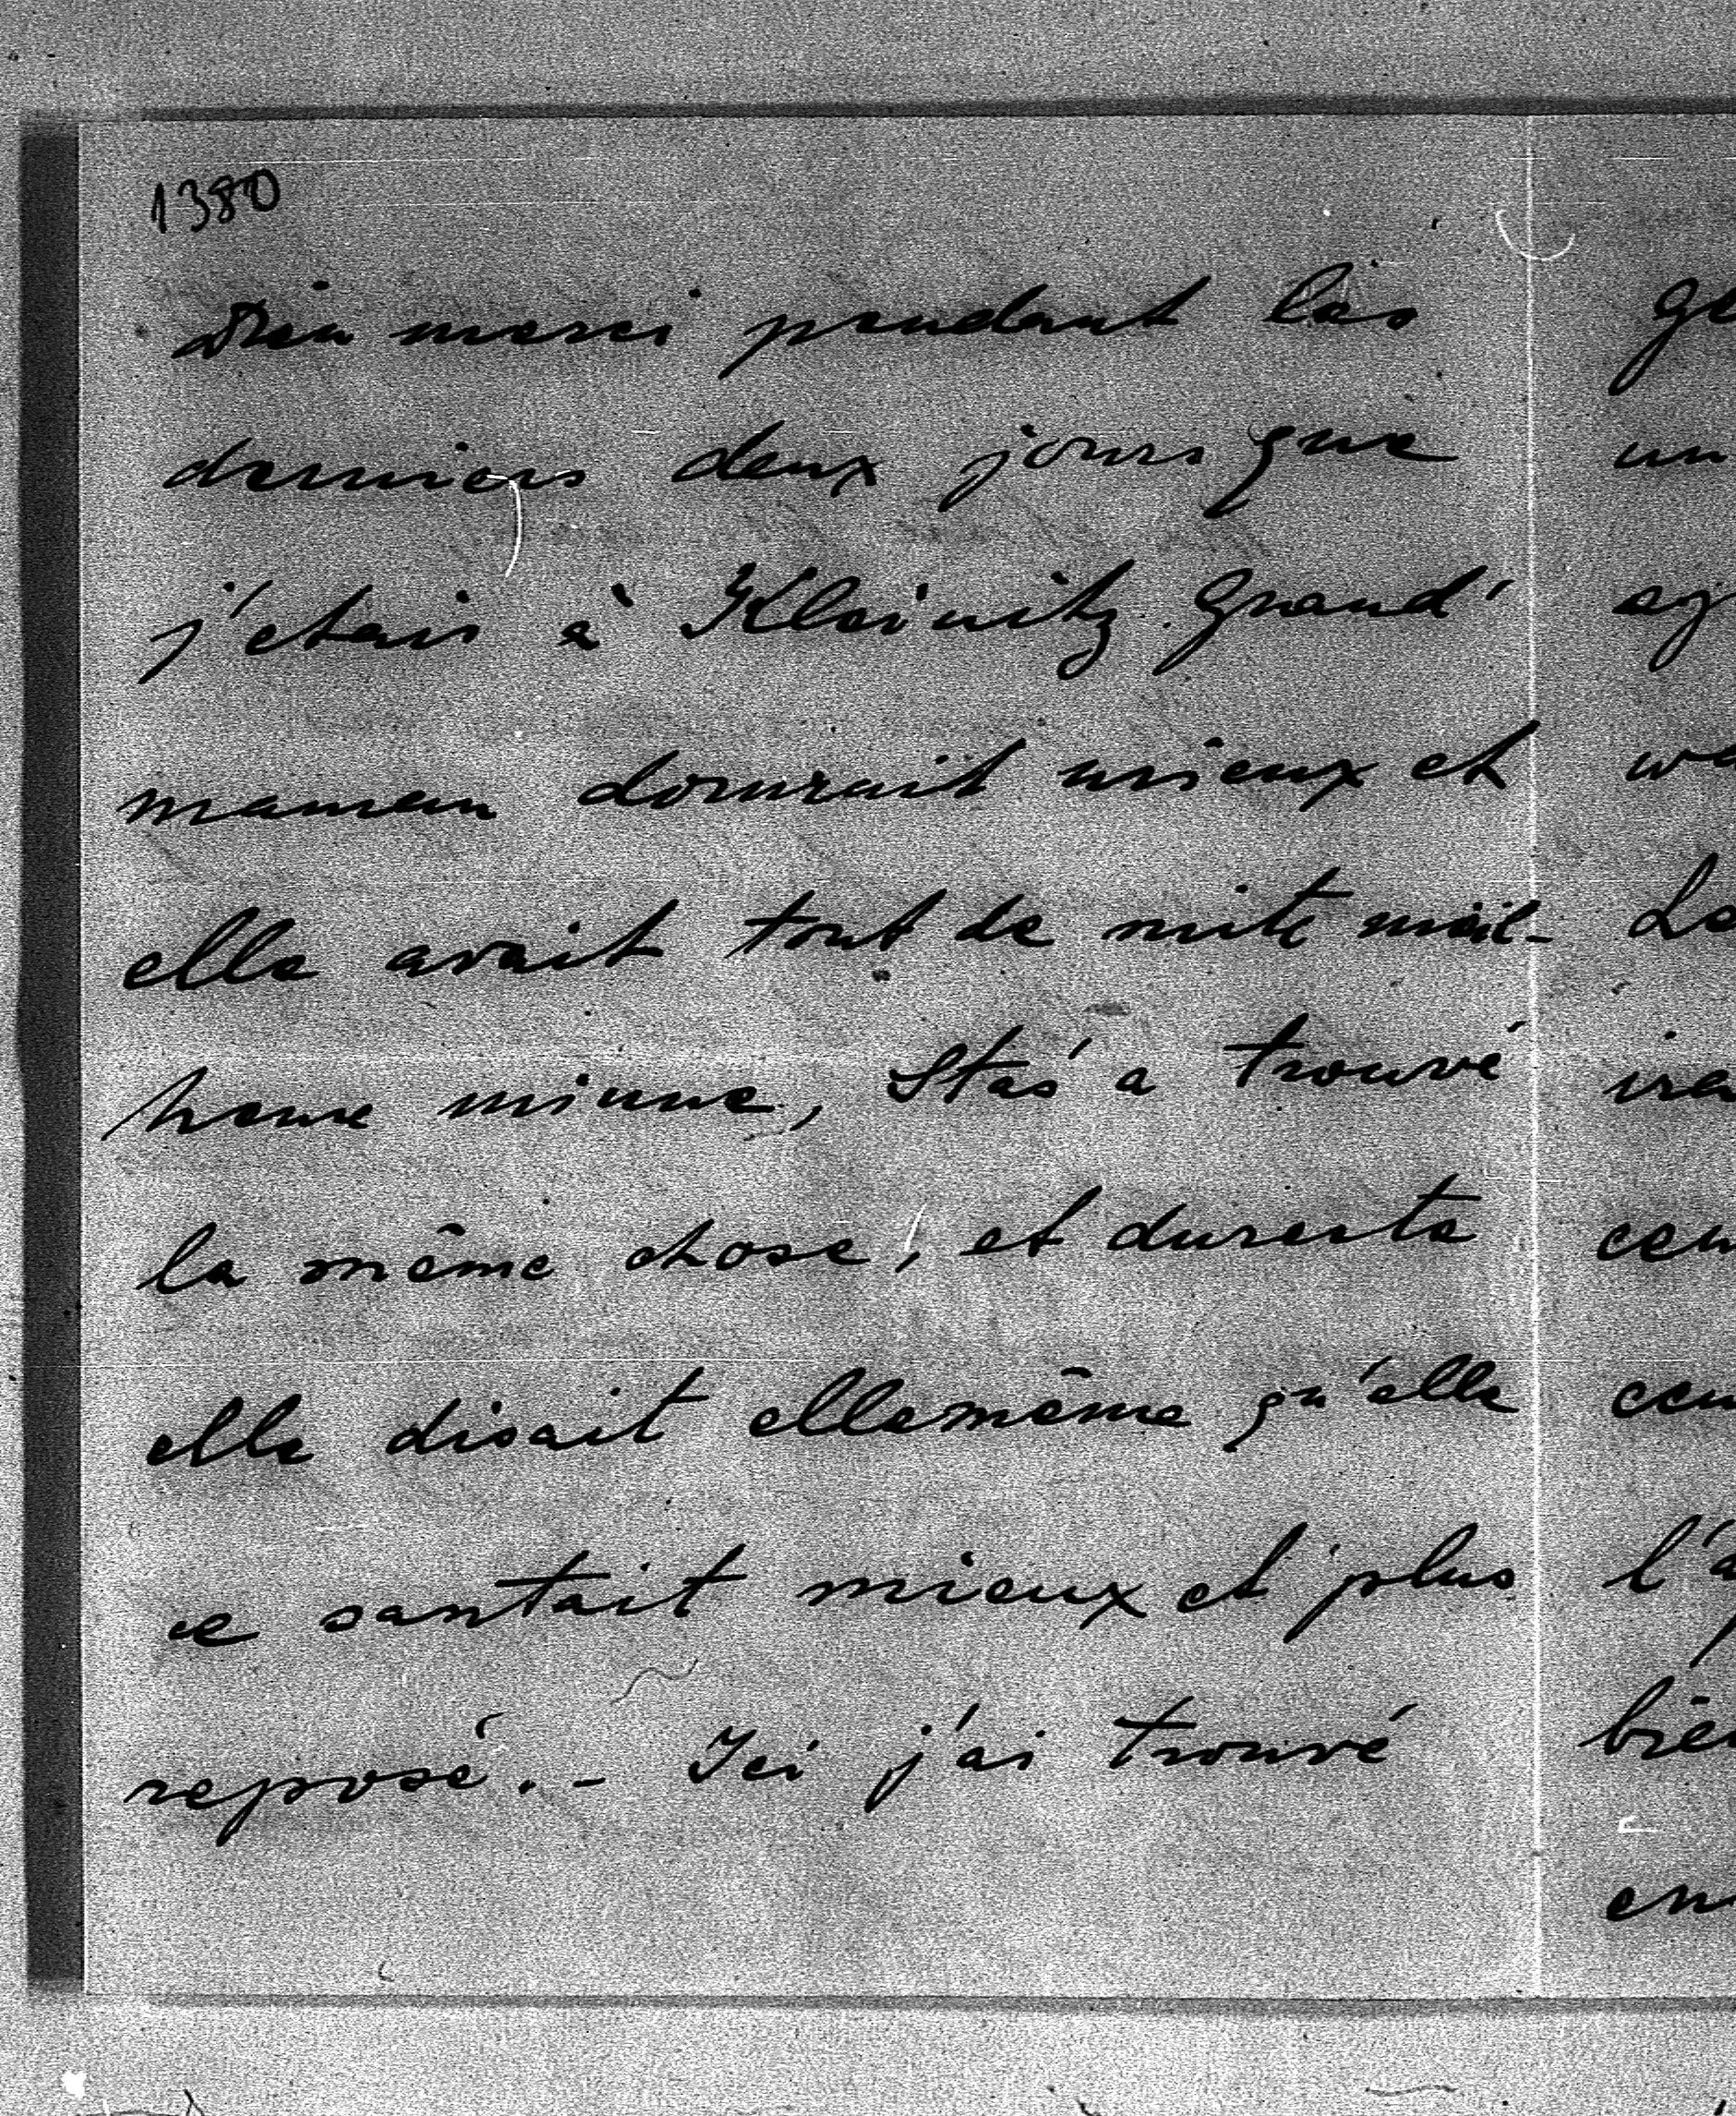 1380
Dieu merci pendant les
derniers deux jours que
j'etais à Kleinitz Grand'
maman dormait mieux et
elle avait tout de suite meil-
heure minne, Stas' a trouvé
la même chose, et
elle disait ellemême qu'elle
ce santait mieux et plus
reposé. - Ici j'ai trouvé